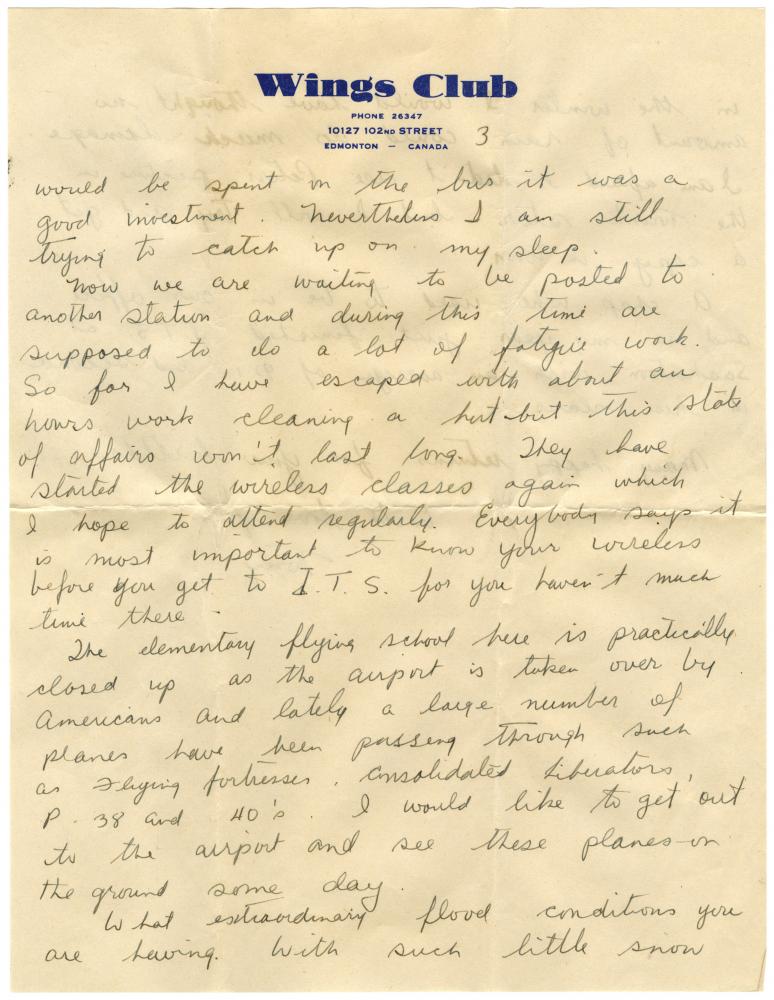 Wings Club
PHONE 26347
10127 102ND STREET
EDMONTON — CANADA
3
would be spent on the bus it was a
good investment. Nevertheless I am still
trying to catch up on my sleep.
Now we are waiting to be posted to
another station and during this time are
supposed to do a lot of fatigue work.
So far I have escaped with about an
hours work cleaning a hut but this state
of affairs won't last long. They have
started the wireless classes again which
I hope to attend regularly. Everybody says it
is most important to know your wireless
before you get to I.T.S. for you haven't much
time there.
The elementary flying school here is practically
closed up as the airport is taken over by
Americans and lately a large number of
planes have been passing through such
as Flying fortresses, Consolidated Liberators,
P-38 and 40's. I would like to get out
to the airport and see these planes on
the ground some day.
What extraordinary flood conditions you
are having. With such little snow